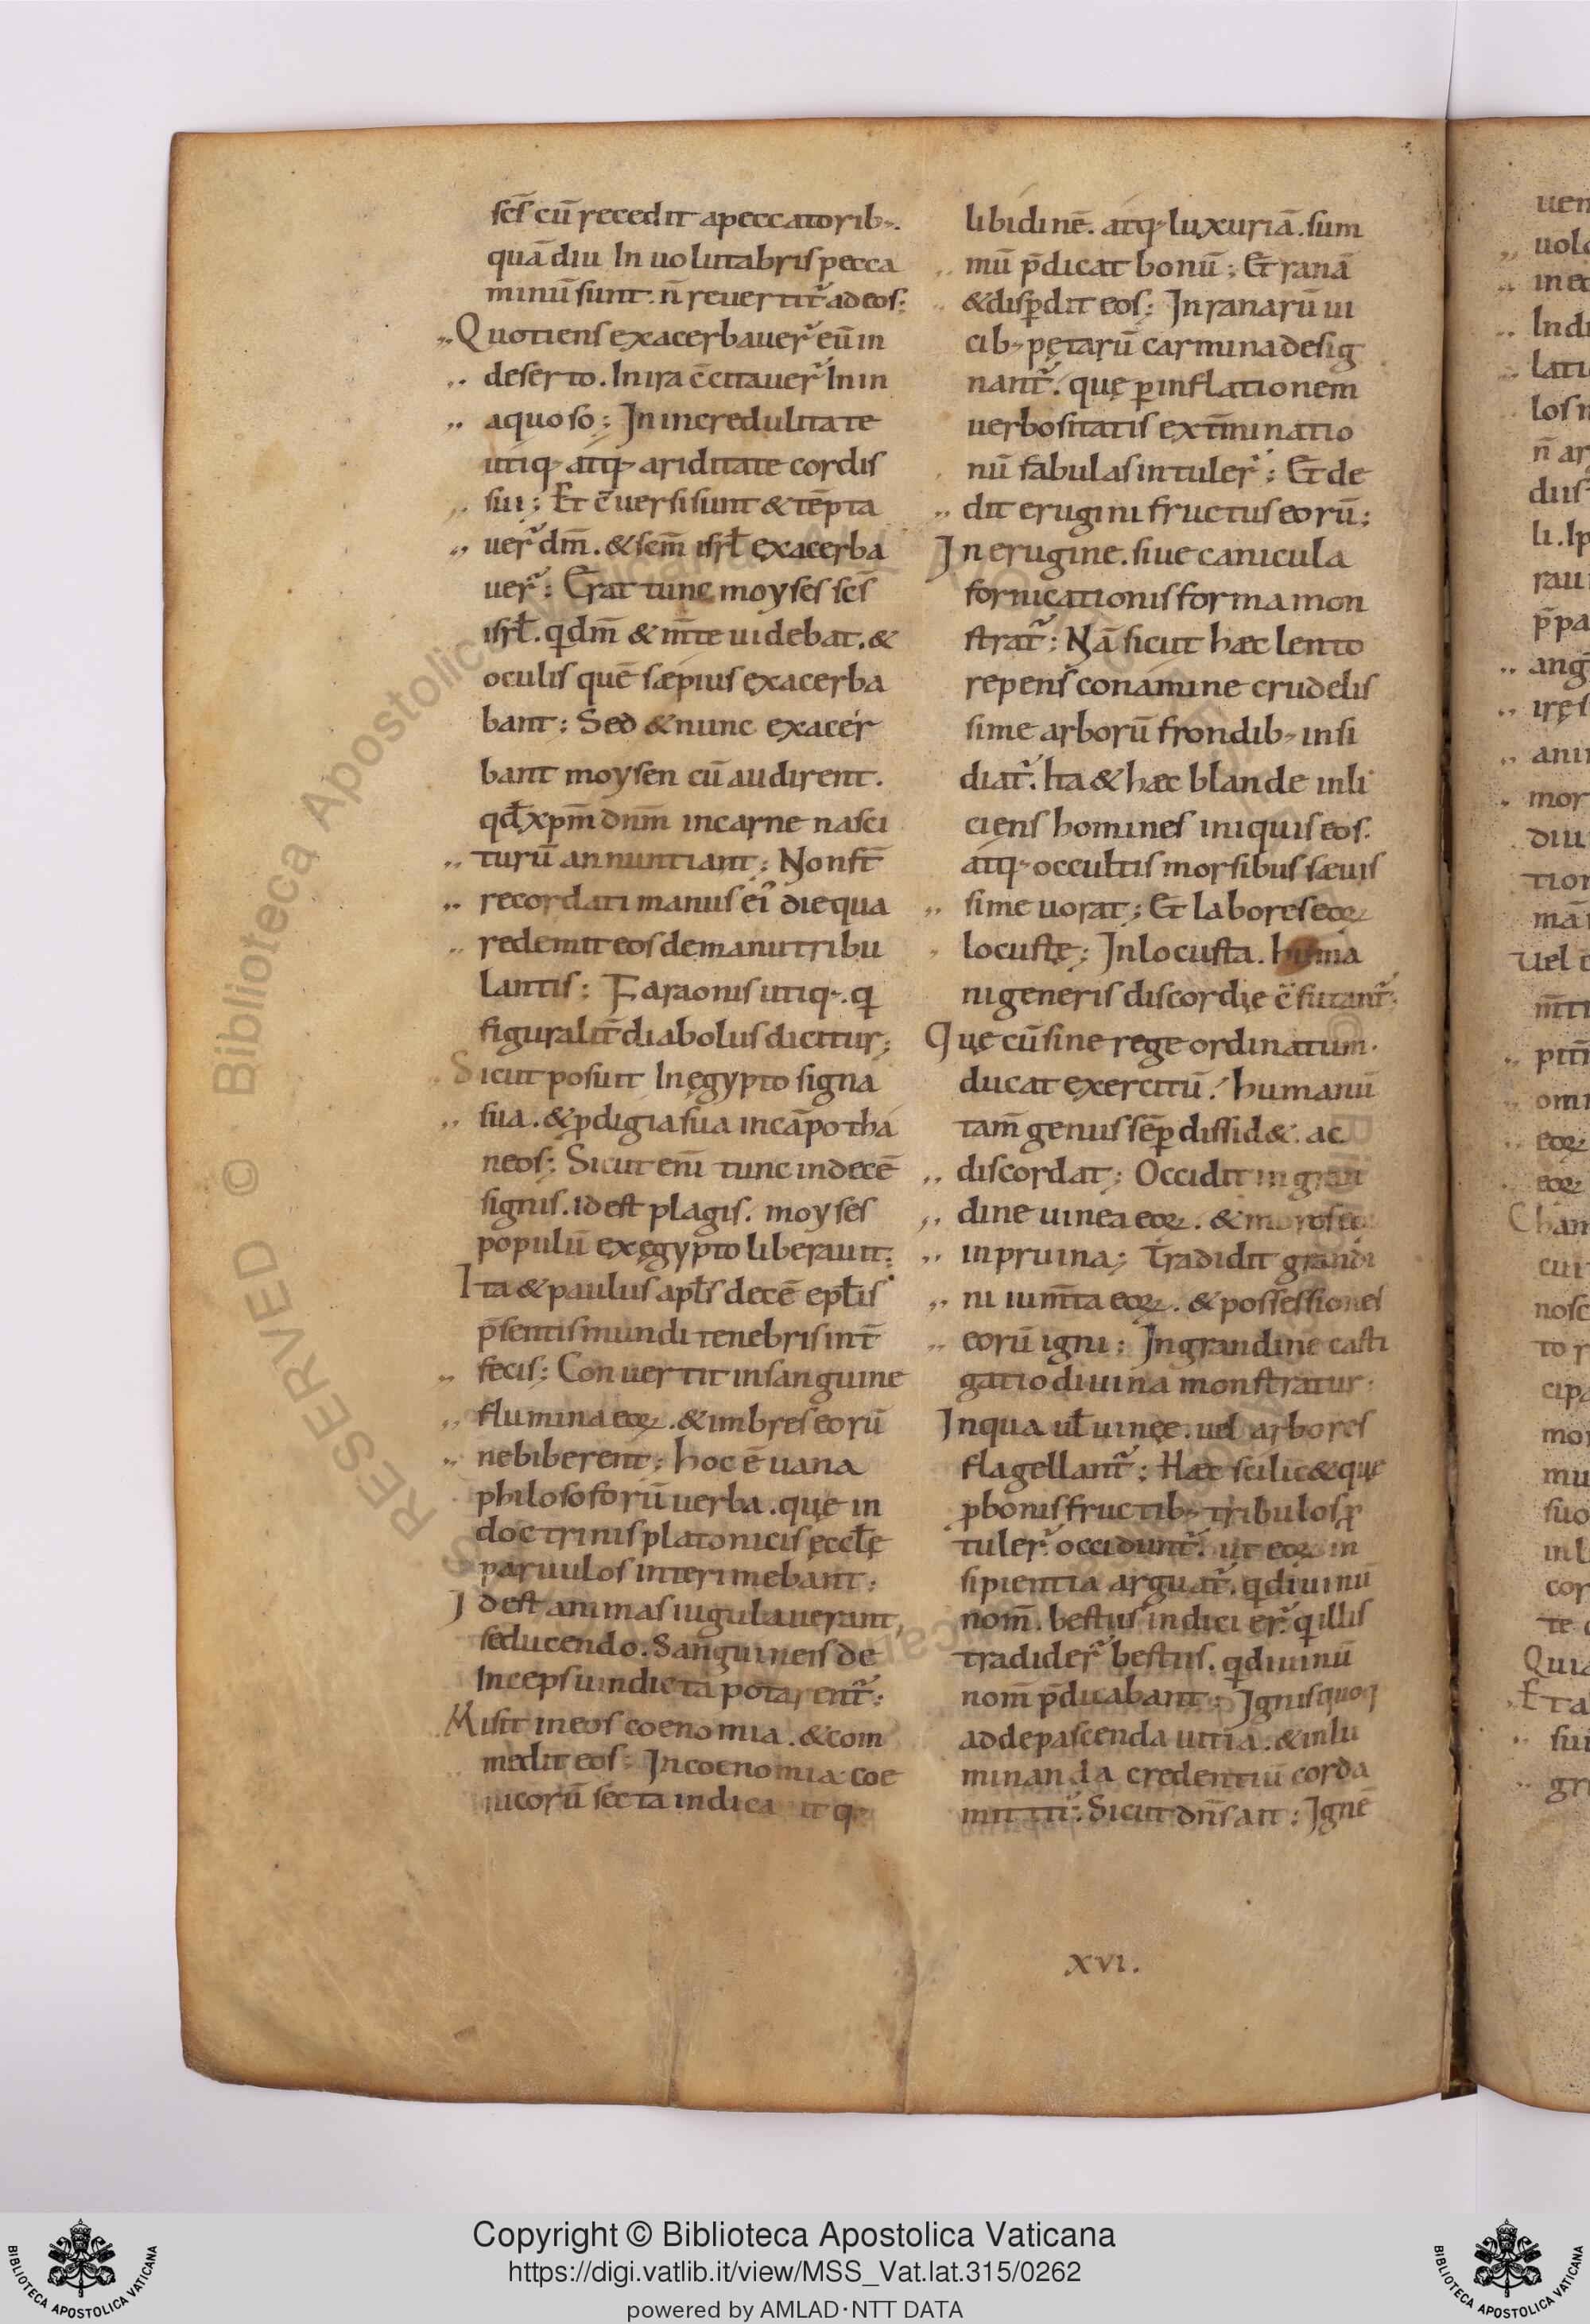 sc̄s cū recedit a peccatorib;.
quā diu In uolutabris pecca
minū sunt. n̄ reuertit᷑ ad eos;
Quotiens exacerbauer᷑ eū in
deserto. In ira c̄citauer᷑ In in
aquoso; In incredulitate
utiq; atq; ariditate cordis
sui; Et c̄uersi sunt & tēpta
uer᷑ dm̄. & scm̄ isrł exacerba
uer᷑; Erat tunc moyses sc̄s
isrł. q dm̄ & m̄te uidebat. &
oculis quē sæpius exacerba
bant; Sed & nunc exacer
bant moysen cū audirent.
qđ xpm̄ dnm̄ in carne nasci
turū annuntiant; Non st̄
recordati manus ei᷒ die qua
redemit eos de manu tribu
lantis; Faraonis utiq;. q
figuralit̄ diabolus dicitur;
Sicut posuit In ęgypto signa
sua. & ꝓdigia sua in cāpo tha
neos; Sicut enī tunc in decē
signis. id est plagis. moyses
populū ex ęgypto liberauit;
Ita & paulus apłs decē epłis
p̄sentis mundi tenebris int̄
fecis; Conuertit in sanguine
flumina eoꝝ. & imbres eorū
ne biberent; hoc ē uana
philosoforū uerba. quę in
doctrinis platonicis ęccłę
paruulos interimebant;
Id est animas iugulauerant,
seducendo. Sanguineis de
Inceps uindicta potarent᷑;
Misit in eos coenomia. & com
medit eos; In coenomia coe
nicorū secta indica it q;
libidinē. atq; luxuriā. sum
mū p̄dicat bonū; Et ranā
& disꝑdit eos; In ranarū ui
cib; pętarū carmina desig
nant᷑. quę ꝑ inflationem
uerbositatis ext̄minatio
nū fabulas intuler᷑; Et de
dit erugini fructus eorū;
In erugine. siue canicula
fornicationis forma mon
strat᷑; Nā sicut hæc lento
repens conamine crudelis
sime arborū frondib; insi
diat᷑. Ita & hæc blande inli
ciens homines iniquis eos.
atq; occultis morsibus sæuis
sime uorat; Et labores eoꝝ
locustę; In locusta. huma
ni generis discordię c̄futant᷑;
Quę cū sine rege ordinatum
ducat exercitū. humanū
tam̄ genus sēꝑ dissid&. ac
discordat; Occidit in gran
dine uinea eoꝝ. & moros eoꝝ
in pruina; Tradidit grandi
ni ium̄ta eoꝝ. & possessiones
eorū igni; In grandine casti
gatio diuina monstratur;
In qua uł uineę. uel arbores
flagellant᷑; Hæc scilic& quę
ꝓ bonis fructib; tribulos ꝓ
tuler᷑ occidunt᷑. ut eoꝝ in
sipientia arguat᷑. q diuinū
nom̄. bestiis indici er᷑. q illis
tradider᷑ bestiis. q diuinū
nom̄ p̄dicabant; Ignis quoq;
ad depascenda uitia. & inlu
minanda credentiū corda
mittit᷑. Sicut dn̄s ait; Ignē
xvi.
Copyright © Biblioteca Apostolica Vaticana
https://digi.vatlib.it/view/MSS_Vat.lat.315/0262
powered by AMLAD·NTT DATA